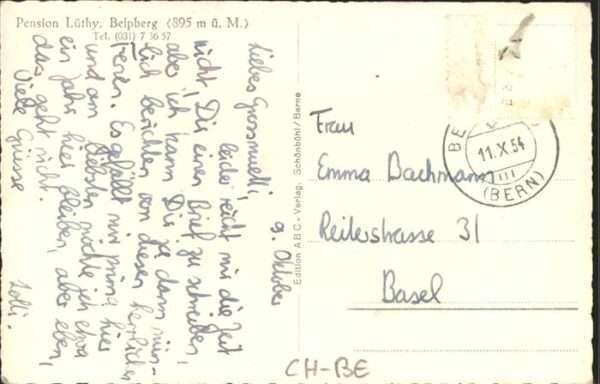 Pension Lüthy, Belpberg (895 m ü. M.)
Tel. (031) 7 36 57
9. Oktober
Liebes Grossmuetti,
leider reicht mir die Zeit
nicht, Dir einen Brief zu schreiben,
aber ich kann Dir ja dann mün-
lich berichten von diesen herrlichen
Ferien. Es gefällt mir prima hier
und am liebsten möchte ich etwa
ein Jahr hier bleiben, aber eben,
das geht nicht.
Viele Grüsse
Lolli.
Edition ABC-Verlag, Schönbühl/Berne
11.X.54
(BERN)
Frau
Emma Bachmann
Reiterstrasse 31
Basel
CH-BE